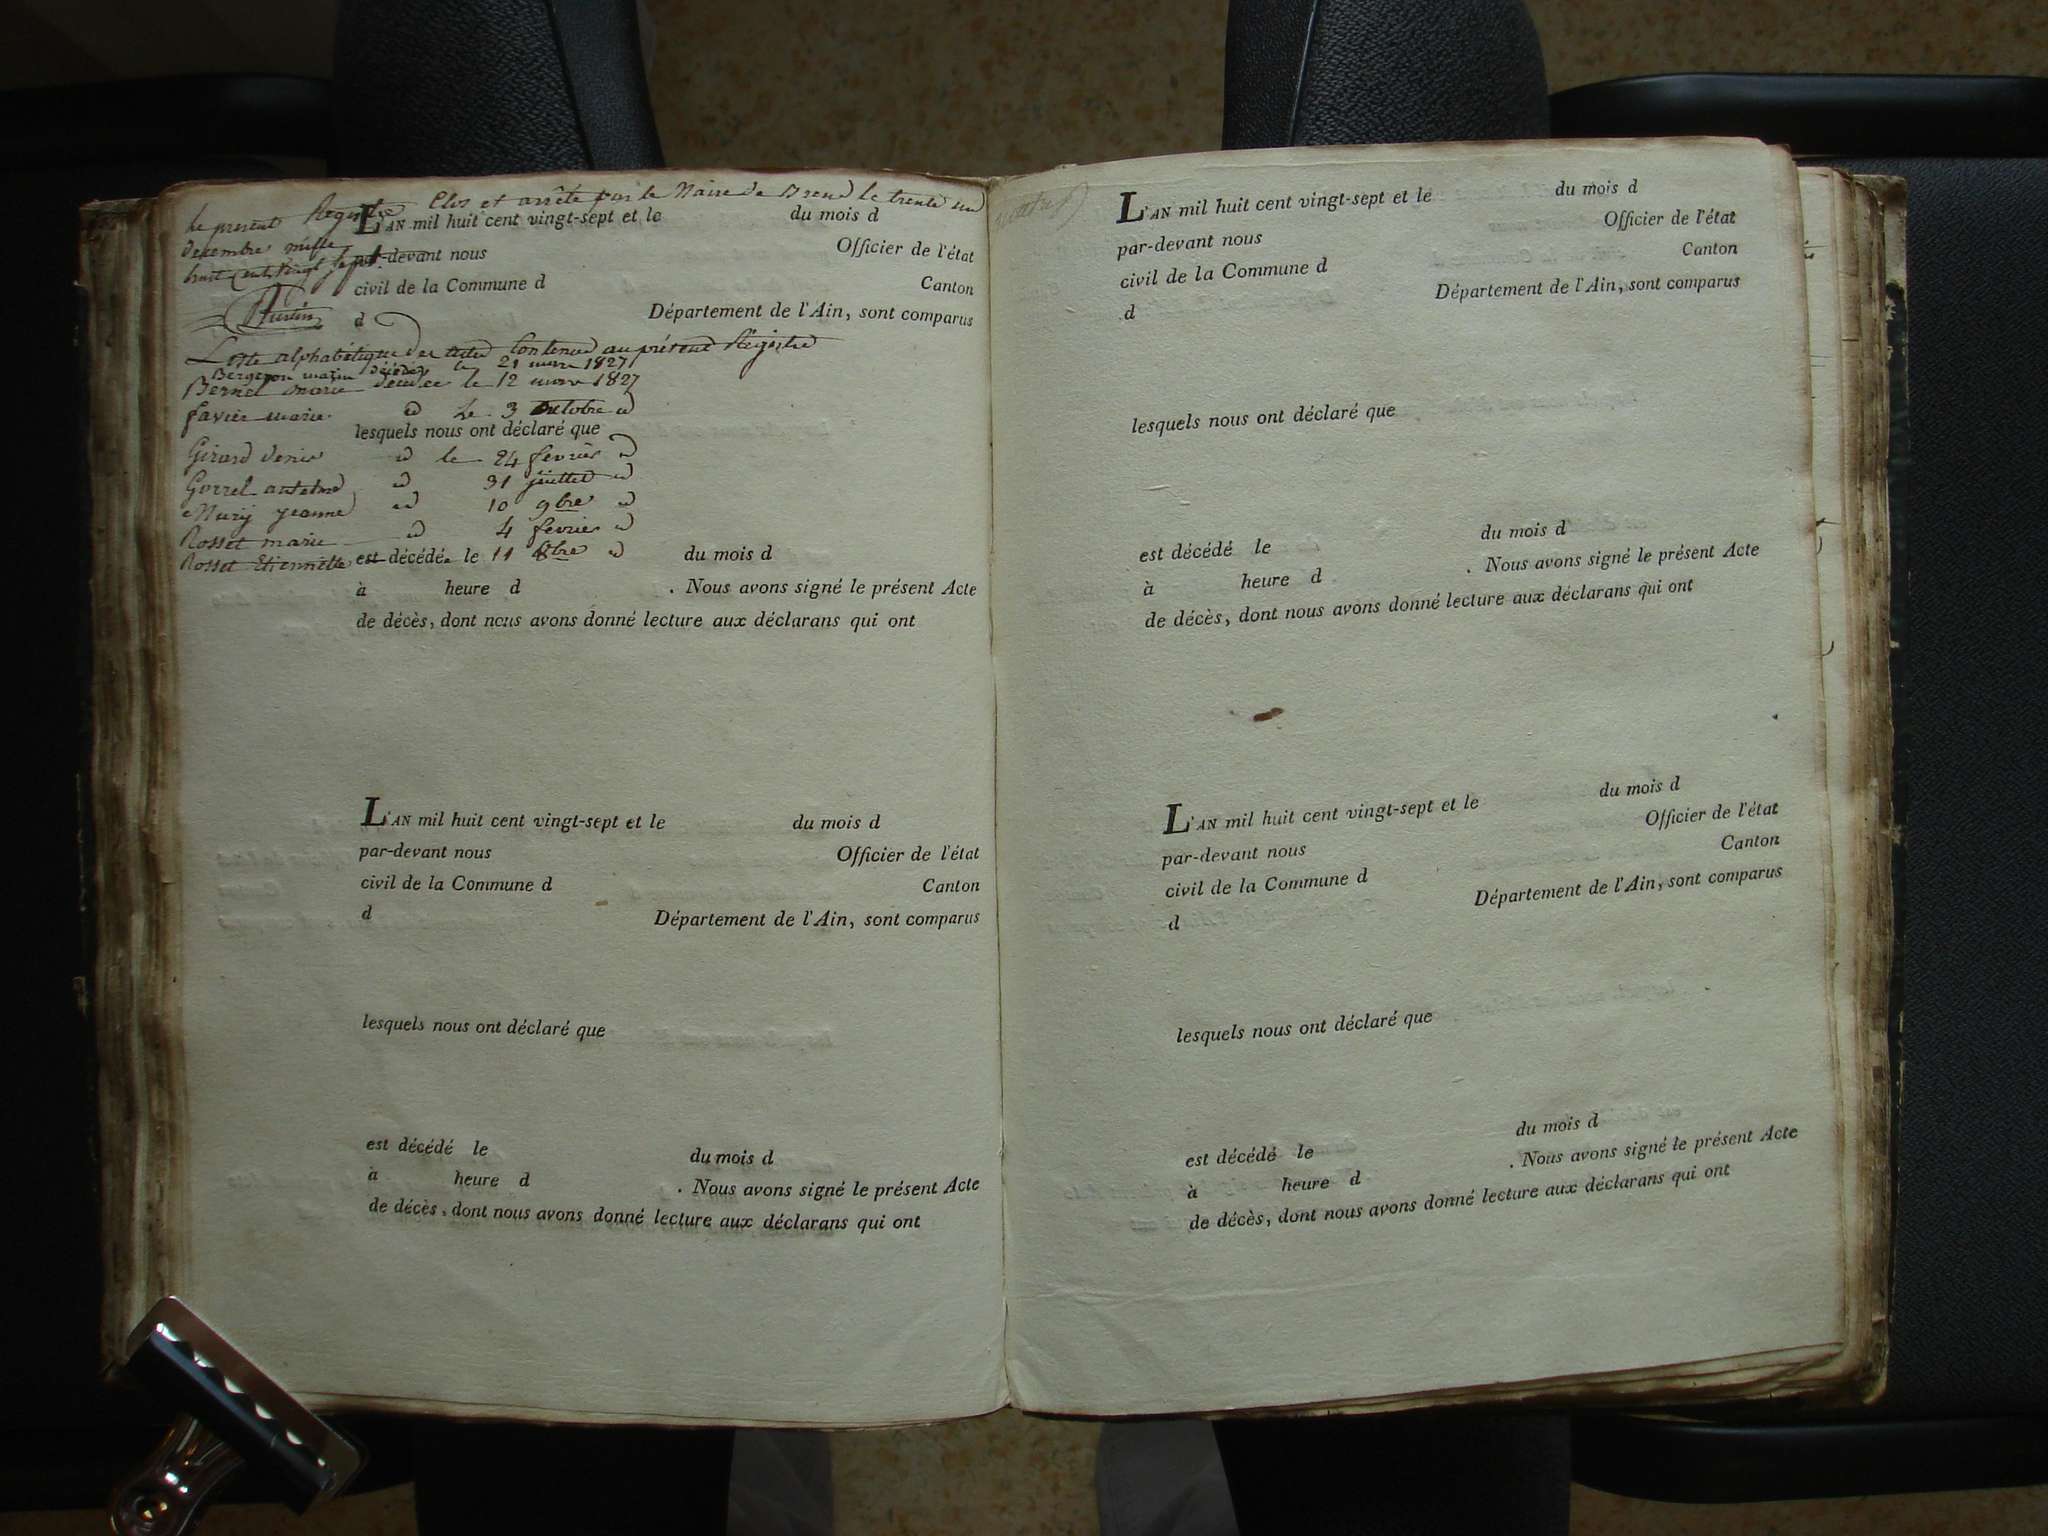 le present Registre Clos et arrêté par le Maire de Brens le trente un
decembre mille
huit cent vingt sept.
L'AN mil huit cent vingt-sept et le du mois d
par-devant nous Officier de l'état
civil de la Commune d Canton
d Département de l'Ain, sont comparus
Liste alphabétique des actes Contenus au présent Registre
Bergeron décédé le 21 mars 1827
Bernel marie décédée le 12 mars 1827
favier marie id Le 3 Octobre id
lesquels nous ont déclaré que
Girard denis id le 24 fevrier id
Gorrel antelme id 31 juillet id
Mury jeanne id 10 9bre id
Rosset marie id 4 fevrier id
Rosset Etiennette est décédée le 11 8bre id du mois d
à heure d . Nous avons signé le présent Acte
de décès, dont nous avons donné lecture aux déclarans qui ont
L'AN mil huit cent vingt-sept et le du mois d
par-devant nous Officier de l'état
civil de la Commune d Canton
d Département de l'Ain, sont comparus
lesquels nous ont déclaré que
est décédé le du mois d
à heure d . Nous avons signé le présent Acte
de décès, dont nous avons donné lecture aux déclarans qui ont
L'AN mil huit cent vingt-sept et le du mois d
par-devant nous Officier de l'état
civil de la Commune d Canton
d Département de l'Ain, sont comparus
lesquels nous ont déclaré que
est décédé le du mois d
à heure d . Nous avons signé le présent Acte
de décès, dont nous avons donné lecture aux déclarans qui ont
L'AN mil huit cent vingt-sept et le du mois d
par-devant nous Officier de l'état
civil de la Commune d Canton
d Département de l'Ain, sont comparus
lesquels nous ont déclaré que
est décédé le du mois d
à heure d . Nous avons signé le présent Acte
de décès, dont nous avons donné lecture aux déclarans qui ont